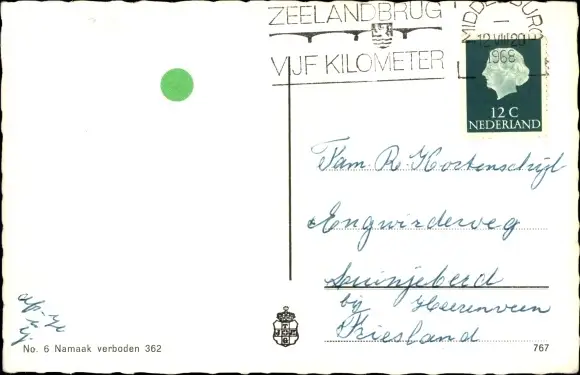 ZEELANDBRUG
VIJF KILOMETER
MIDDELBURG
12 VIII 20
1968
12 C
NEDERLAND
Fam. R. Hortenschijl
Engwirderweg
Luinjeberd
bij Heerenveen
Friesland
No. 6 Namaak verboden 362
767